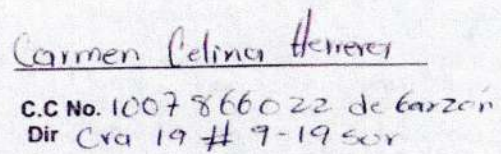 Carmen Celina Herrera
C.C No. 1007866022 de Garzón
Dir Cra 19 # 9-19 sur